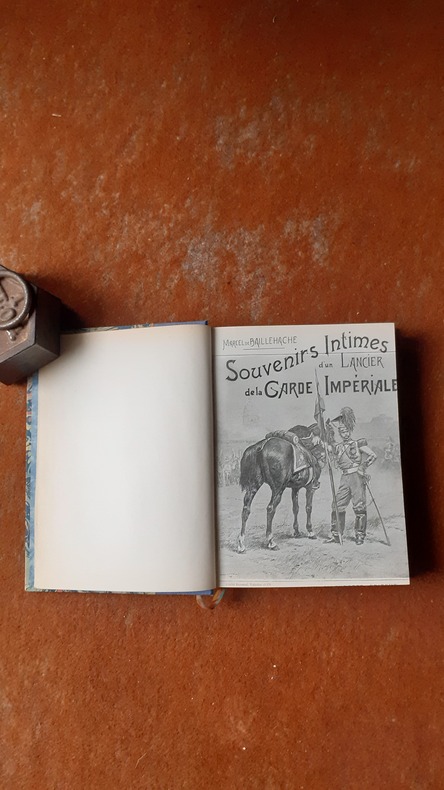 MARCEL DE BAILLEHACHE
Souvenirs Intimes
d'un LANCIER
de la GARDE IMPÉRIALE